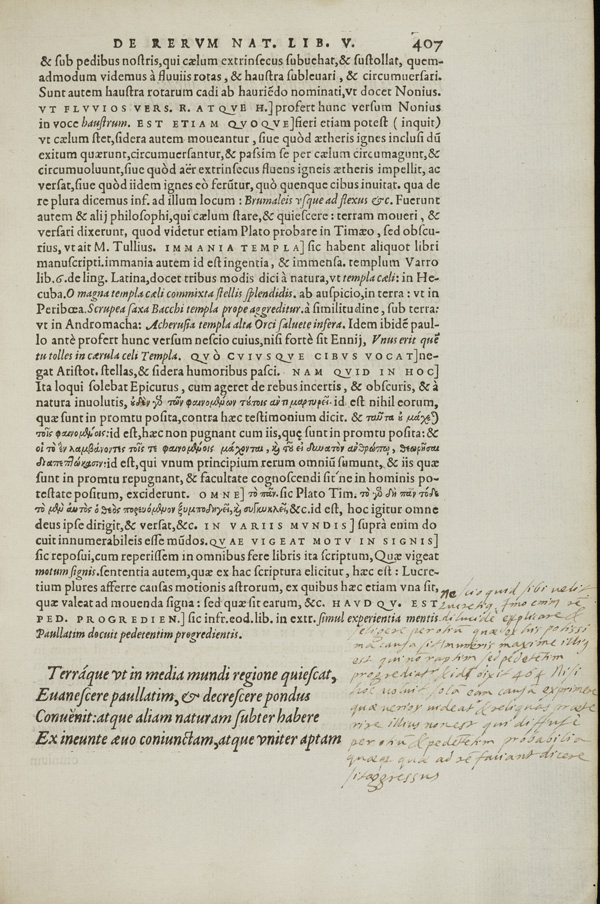 DE RERVM NAT. LIB. V. 407
& sub pedibus nostris, qui cælum extrinsecus subuehat, & sustollat, quem-
admodum videmus à fluuiis rotas, & haustra subleuari, & circumuersari.
Sunt autem haustra rotarum cadi ab hauriēdo nominati, vt docet Nonius.
VT FLVVIOS VERS. R. ATQVE H.] profert hunc versum Nonius
in voce haustrum. EST ETIAM QVOQVE] fieri etiam potest (inquit)
vt cælum stet, sidera autem moueantur, siue quòd ætheris ignes inclusi dū
exitum quærunt, circumuersantur, & passim se per cælum circumagunt, &
circumuoluunt, siue quòd aër extrinsecus fluens igneis ætheris impellit, ac
versat, siue quòd iidem ignes eò ferūtur, quò quenque cibus inuitat. qua de
re plura dicemus inf. ad illum locum: Brumaleis vsque ad flexus &c. Fuerunt
autem & alij philosophi, qui cælum stare, & quiescere: terram moueri, &
versari dixerunt, quod videtur etiam Plato probare in Timæo, sed obscu-
rius, vt ait M. Tullius. IMMANIA TEMPLA] sic habent aliquot libri
manuscripti. immania autem id est ingentia, & immensa. templum Varro
lib. 6. de ling. Latina, docet tribus modis dici à natura, vt templa cæli: in He-
cuba. O magna templa cæli commixta stellis splendidis. ab auspicio, in terra: vt in
Peribœa. Scrupea saxa Bacchi templa prope aggreditur. à similitudine, sub terra:
vt in Andromacha: Acherusia templa alta Orci saluete infera. Idem ibidē paul-
lo antè profert hunc versum nescio cuius, nisi fortè sit Ennij, Vnus erit quē
tu tolles in cærula celi Templa. QVÒ CVIVSQVE CIBVS VOCAT] ne-
gat Aristot. stellas, & sidera humoribus pasci. NAM QVID IN HOC]
Ita loqui solebat Epicurus, cum ageret de rebus incertis, & obscuris, & à
natura inuolutis, οὐδὲν γὸ τῶν φαινομένων τούτοις ἀντιμαρτυρεῖ. id est nihil eorum,
quæ sunt in promtu posita, contra hæc testimonium dicit. & ταῦτα οὐ μάχεται
τοῖς φαινομένοις: id est, hæc non pugnant cum iis, quę sunt in promtu posita: &
id est, qui vnum principium rerum omniū sumunt, & iis quæ
sunt in promtu repugnant, & facultate cognoscendi sit'ne in hominis po-
testate positum, exciderunt. OMNE] τὸ πᾶν. sic Plato Tim. τὸ γὸ δὴ πᾶν τόδε
&c. id est, hoc igitur omne
deus ipse dirigit, & versat, &c. IN VARIIS MVNDIS] suprà enim do
cuit innumerabileis esse mūdos. QVAE VIGEAT MOTV IN SIGNIS]
sic reposui, cum reperissem in omnibus fere libris ita scriptum, Quæ vigeat
motum signis. sententia autem, quæ ex hac scriptura elicitur, hæc est: Lucre-
tium plures afferre causas motionis astrorum, ex quibus hæc etiam vna sit,
quæ valeat ad mouenda signa: sed quæ sit earum, &c. HAVDQV. EST
PED. PROGREDIEN.] sic infr. eod. lib. in extr. simul experientia mentis
Paullatim docuit pedetentim progredientis.
Terráque vt in media mundi regione quiescat,
Euanescere paullatim, & decrescere pondus
Conuēnit: atque aliam naturam subter habere
Ex ineunte æuo coniunctam, atque vniter aptam
quid sibi velit
Lucretius
dilucide explicare &
maxime illius
est qui non raptim sed pedetentim
progrediat
sola eam causa exprimere
non est qui
pedetetim probabilia
ad re faciant dicere
sit aggressus